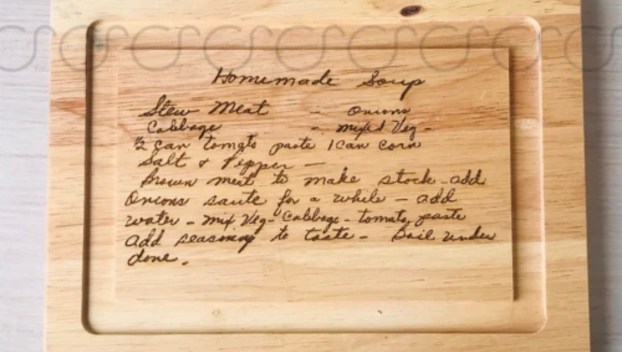 Homemade Soup
Stew Meat - Onions
Cabbage - mixed Veg -
½ can tomato paste 1 can corn
Salt & Pepper -
Brown meat to make stock - add
Onions saute for a while - add
water - mix Veg - Cabbage - tomato, paste
add seasoning to taste - Boil under
done.